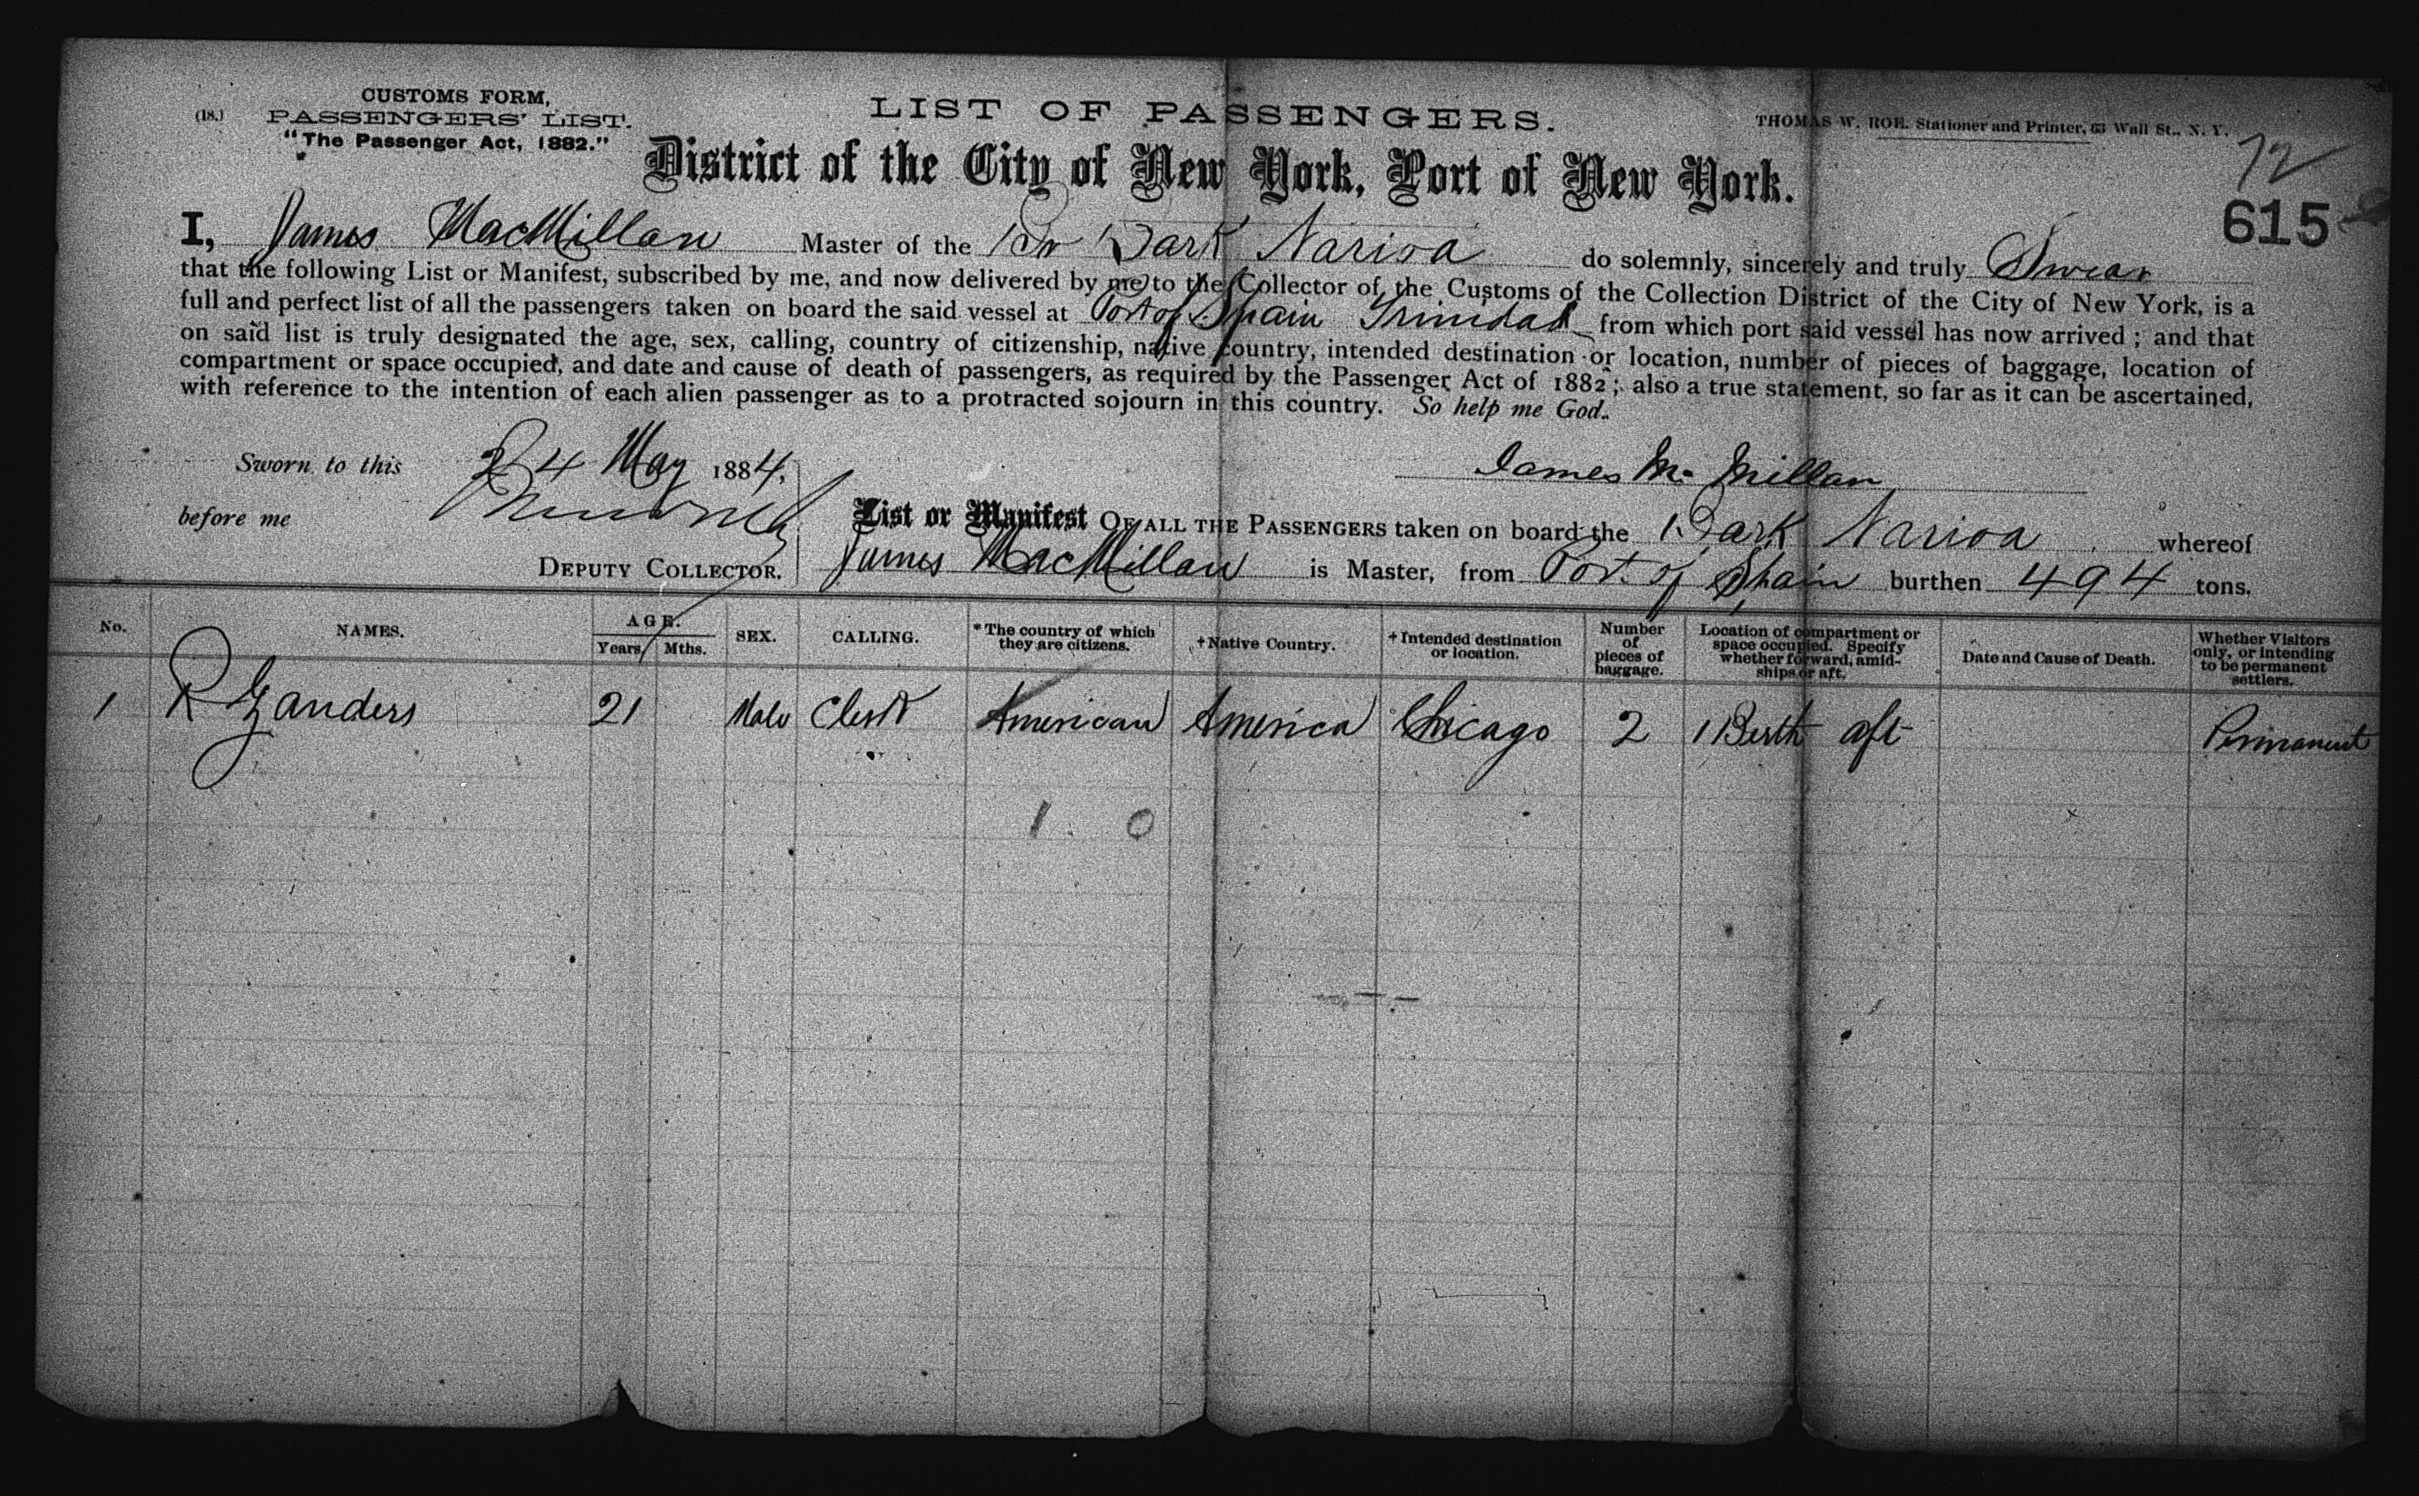 (18.)
CUSTOMS FORM,
PASSENGERS' LIST.
"The Passenger Act, 1882."
LIST OF PASSENGERS.
THOMAS W. ROE. Stationer and Printer, 63 Wall St., N. Y.
District of the City of New York, Port of New York.
72
615
I, James MacMillan Master of the Br Bark Nariva do solemnly, sincerely and truly Swear
that the following List or Manifest, subscribed by me, and now delivered by me to the Collector of the Customs of the Collection District of the City of New York, is a
full and perfect list of all the passengers taken on board the said vessel at Port of Spain Trinidad from which port said vessel has now arrived; and that
on said list is truly designated the age, sex, calling, country of citizenship, native country, intended destination or location, number of pieces of baggage, location of
compartment or space occupied, and date and cause of death of passengers, as required by the Passenger Act of 1882; also a true statement, so far as it can be ascertained,
with reference to the intention of each alien passenger as to a protracted sojourn in this country. So help me God.
Sworn to this 24 May 1884.
James Mc Millan
before me
DEPUTY COLLECTOR.
List or Manifest OF ALL THE PASSENGERS taken on board the Bark Nariva whereof
James MacMillan is Master, from Port of Spain burthen 494 tons.
No. NAMES. AGE. Years Mths. SEX. CALLING. *The country of which they are citizens. †Native Country. †Intended destination or location. Number of pieces of baggage. Location of compartment or space occupied. Specify whether forward, amidships or aft. Date and Cause of Death. Whether Visitors only, or intending to be permanent settlers.
1 R Ganders 21 Male Clerk American America Chicago 2 1 Berth aft Permanent
1. 0